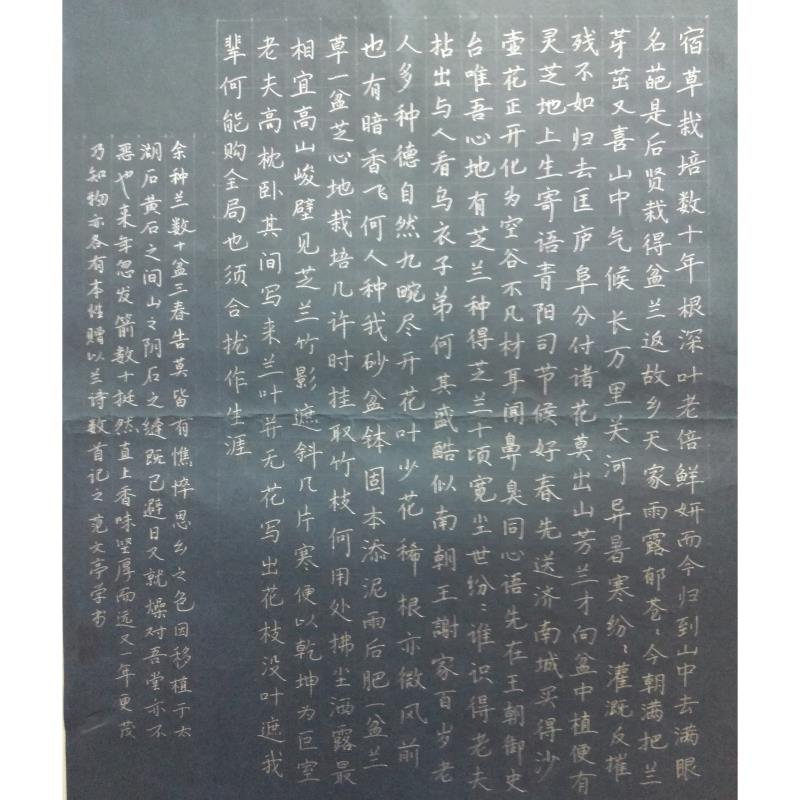 宿草栽培数十年根深叶老倍鲜妍而今归到山中去满眼
名葩是后贤栽得盆兰返故乡天家雨露郁苍〻今朝满把兰
芽茁又喜山中气候长万里关河异暑寒纷〻灌溉反摧
残不如归去匡庐阜分付诸花莫出山芳兰才向盆中植便有
灵芝地上生寄语青阳司节候好春先送济南城买得沙
壶花正开化为空谷不凡材耳闻鼻臭同心语先在王朝御史
台唯吾心地有芝兰种得芝兰十顷宽尘世纷〻谁识得老夫
拈出与人看乌衣子弟何其盛酷似南朝王謝家百岁老
人多种德自然九畹尽开花叶少花稀根亦微风前
也有暗香飞何人种我砂盆钵固本添泥雨后肥一盆兰
草一盆芝心地栽培几许时挂取竹枝何用处拂尘洒露最
相宜高山峻壁见芝兰竹影遮斜几片寒便以乾坤为巨室
老夫高枕卧其间写来兰叶并无花写出花枝没叶遮我
辈何能购全局也须合拢作生涯
余种兰数十盆三春告莫皆有憔悴思乡之色因移植于太
湖石黄石之间山之阴石之缝既已避日又就燥对吾堂亦不
恶也来年忽发箭数十挺然直上香味坚厚而远又一年更茂
乃知物亦各有本性赠以兰诗数首记之 大亭学书